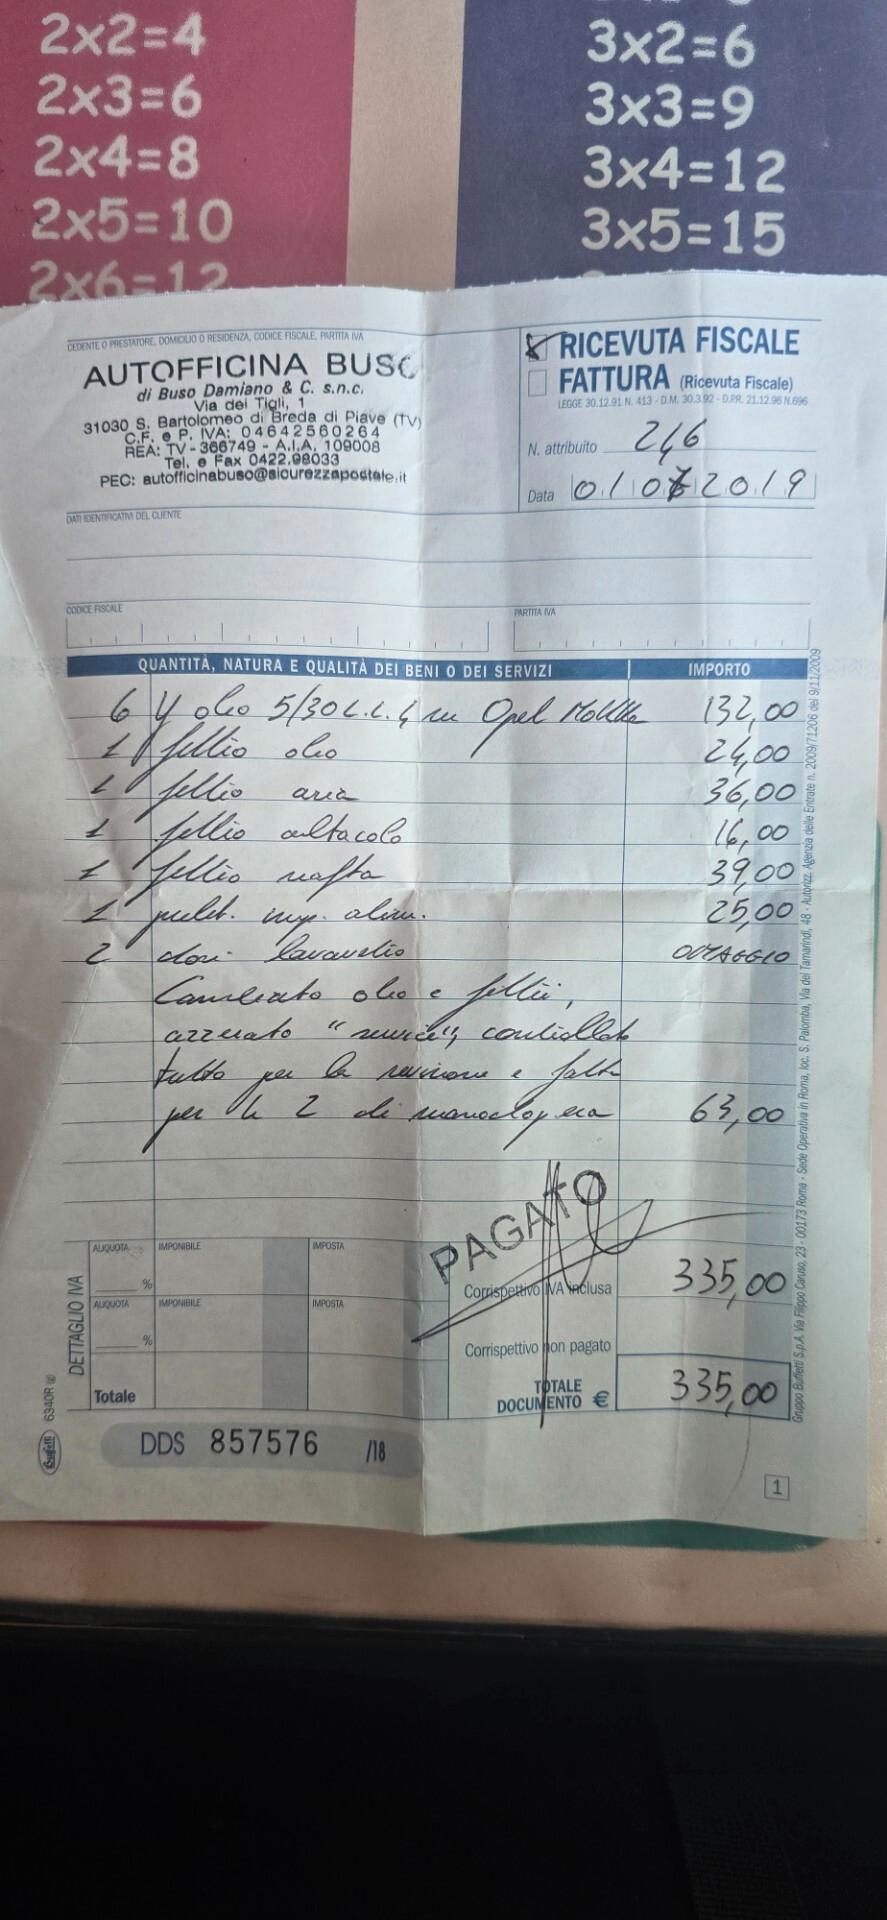 2x2=4
2x3=6
2x4=8
2x5=10
2x6=12
3x2=6
3x3=9
3x4=12
3x5=15
CEDENTE O PRESTATORE, DOMICILIO O RESIDENZA, CODICE FISCALE, PARTITA IVA
AUTOFFICINA BUSO
di Buso Damiano & C. s.n.c.
Via dei Tigli, 1
31030 S. Bartolomeo di Breda di Piave (TV)
C.F. e P. IVA: 04642560264
REA: TV - 366749 - A.I.A. 109008
Tel. e Fax 0422.98033
PEC: autofficinabuso@sicurezzapostale.it
RICEVUTA FISCALE
FATTURA (Ricevuta Fiscale)
LEGGE 30.12.91 N. 413 - D.M. 30.3.92 - D.P.R. 21.12.96 N.696
N. attribuito 246
Data 01 07 2019
DATI IDENTIFICATIVI DEL CLIENTE
CODICE FISCALE
PARTITA IVA
QUANTITÀ, NATURA E QUALITÀ DEI BENI O DEI SERVIZI IMPORTO
6 olio 5/30 su Opel Mokka 132,00
1 filtro olio 24,00
1 filtro aria 36,00
1 filtro abitacolo 16,00
1 filtro nafta 39,00
1 pulit. imp. alim. 25,00
2 dosi lavavetro OMAGGIO
Cambiato olio e filtri,
azzerato "service", controllato
tutto per la revisione e fatto
per h 2 di manodopera 63,00
PAGATO
DETTAGLIO IVA
ALIQUOTA IMPONIBILE IMPOSTA
%
ALIQUOTA IMPONIBILE IMPOSTA
%
Totale
Corrispettivo IVA inclusa 335,00
Corrispettivo non pagato
TOTALE DOCUMENTO € 335,00
6340R
Buffetti
DDS 857576 /18
1
Gruppo Buffetti S.p.A. Via Filippo Caruso, 23 - 00173 Roma - Sede Operativa in Roma, loc. S. Palomba, Via dei Tamarindi, 48 - Autorizz. Agenzia delle Entrate n. 2009/71206 del 9/11/2009